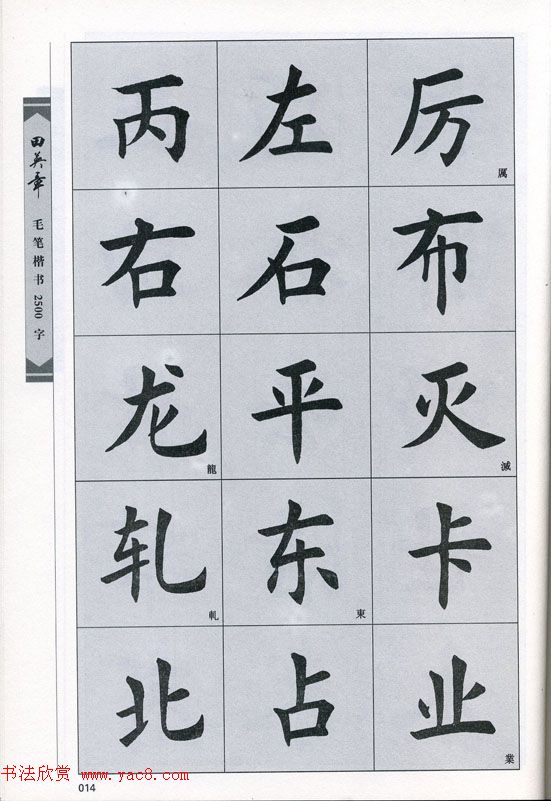 田英章 毛笔楷书2500字
丙 左 厉 厲
右 石 布
龙 龍 平 灭 滅
轧 軋 东 東 卡
北 占 业 業
书法欣赏 www.yac8.com
014